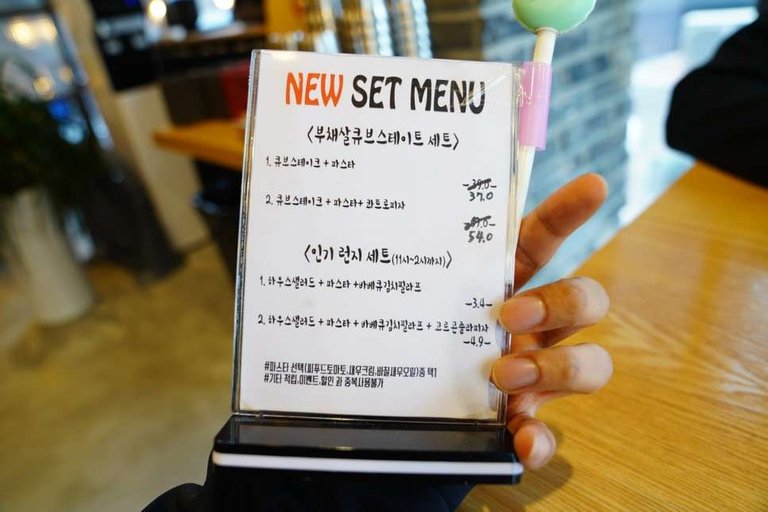 NEW SET MENU
<부채살큐브스테이트 세트>
1. 큐브스테이크 + 파스타
37.0
2. 큐브스테이크 + 파스타 + 콰트로피자
54.0
<인기 런치 세트(11시~2시까지)>
1. 하우스샐러드 + 파스타 +바베큐김치필라프
-3.4-
2. 하우스샐러드 + 파스타 +바베큐김치필라프 + 고르곤졸라피자
-4.9-
#파스타 선택(씨푸드토마토,새우크림,바질새우오일)중 택1
#기타 적립,이벤트,할인 과 중복사용불가